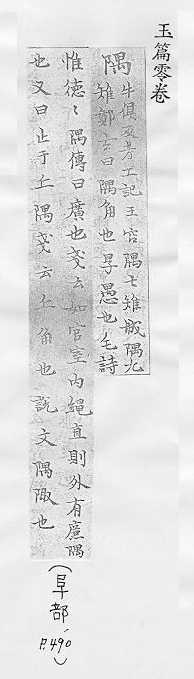 玉篇零卷
隅 牛俱反考工記王宮隅七雉城隅九
雉鄭玄曰隅角也㝵愚也毛詩
惟德〻隅傳曰廣也戔云如宮室內繩直則外有廉隅
也又曰止于土隅戔云土角也說文隅陬也
(阜部, P.490)